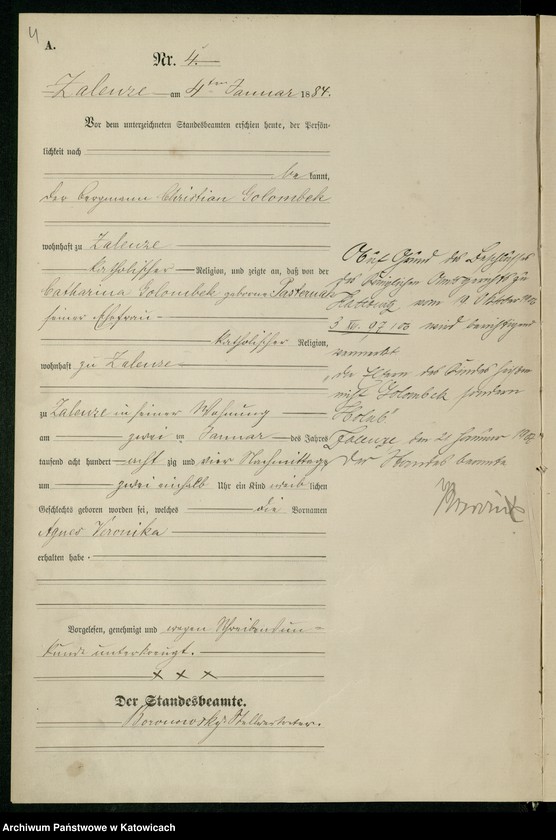 4
A.
Nr. 4.
Zalenze am 4ten Januar 1884.
Vor dem unterzeichneten Standesbeamten erschien heute, der Persön-
lichkeit nach
be kannt,
der Bergmann Christian Golombek
wohnhaft zu Zalenze
katholischer Religion, und zeigte an, daß von der
Catharina Golombek geborne Pasternak
seiner Ehefrau
katholischer Religion,
wohnhaft zu Zalenze
zu Zalenze in seiner Wohnung
am zwei ten Januar des Jahres
tausend acht hundert acht zig und vier Nachmittags
um zwei einhalb Uhr ein Kind weib lichen
Geschlechts geboren worden sei, welches die Vornamen
Agnes Veronika
erhalten habe.
Vorgelesen, genehmigt und wegen Schreibensun-
kunde unterkreuzt.
× × ×
Der Standesbeamte.
Boronowsky Stellvertreter.
Auf Grund des Beschlusses
des Königlichen Amtsgerichts zu
Kattowitz vom 9 Oktober
wird berichtigend
vermerkt
die Eltern des Kindes heißen
nicht Golombek sondern
Holub.
Zalenze den Januar
Der Standesbeamte
Archiwum Państwowe w Katowicach